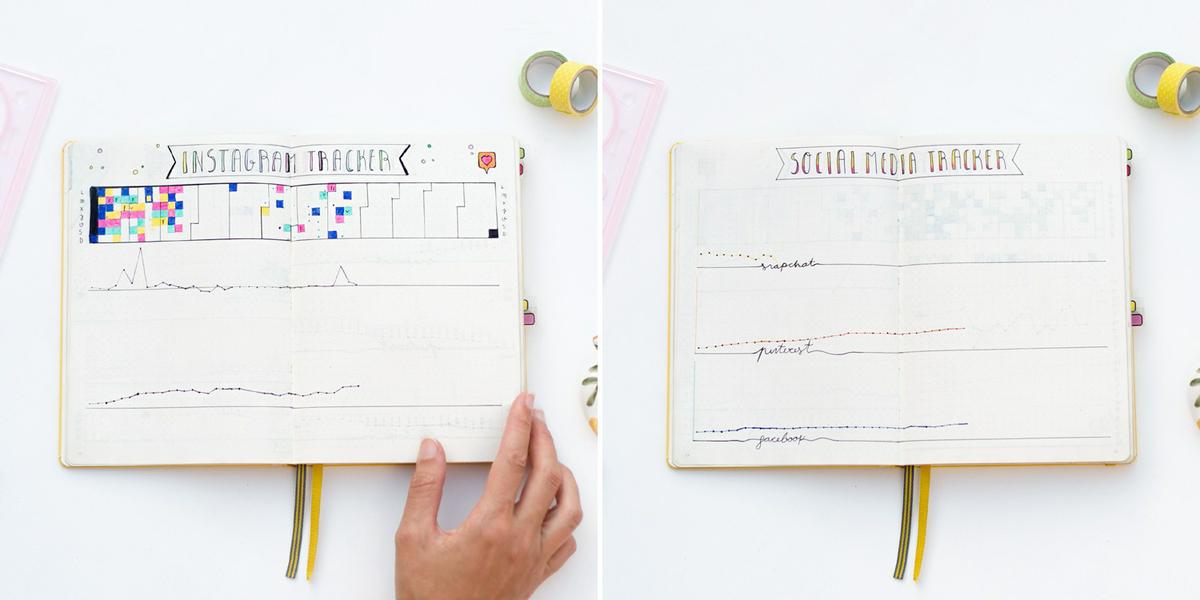 INSTAGRAM TRACKER
L
M
X
J
V
S
D
SOCIAL MEDIA TRACKER
snapchat
pinterest
facebook